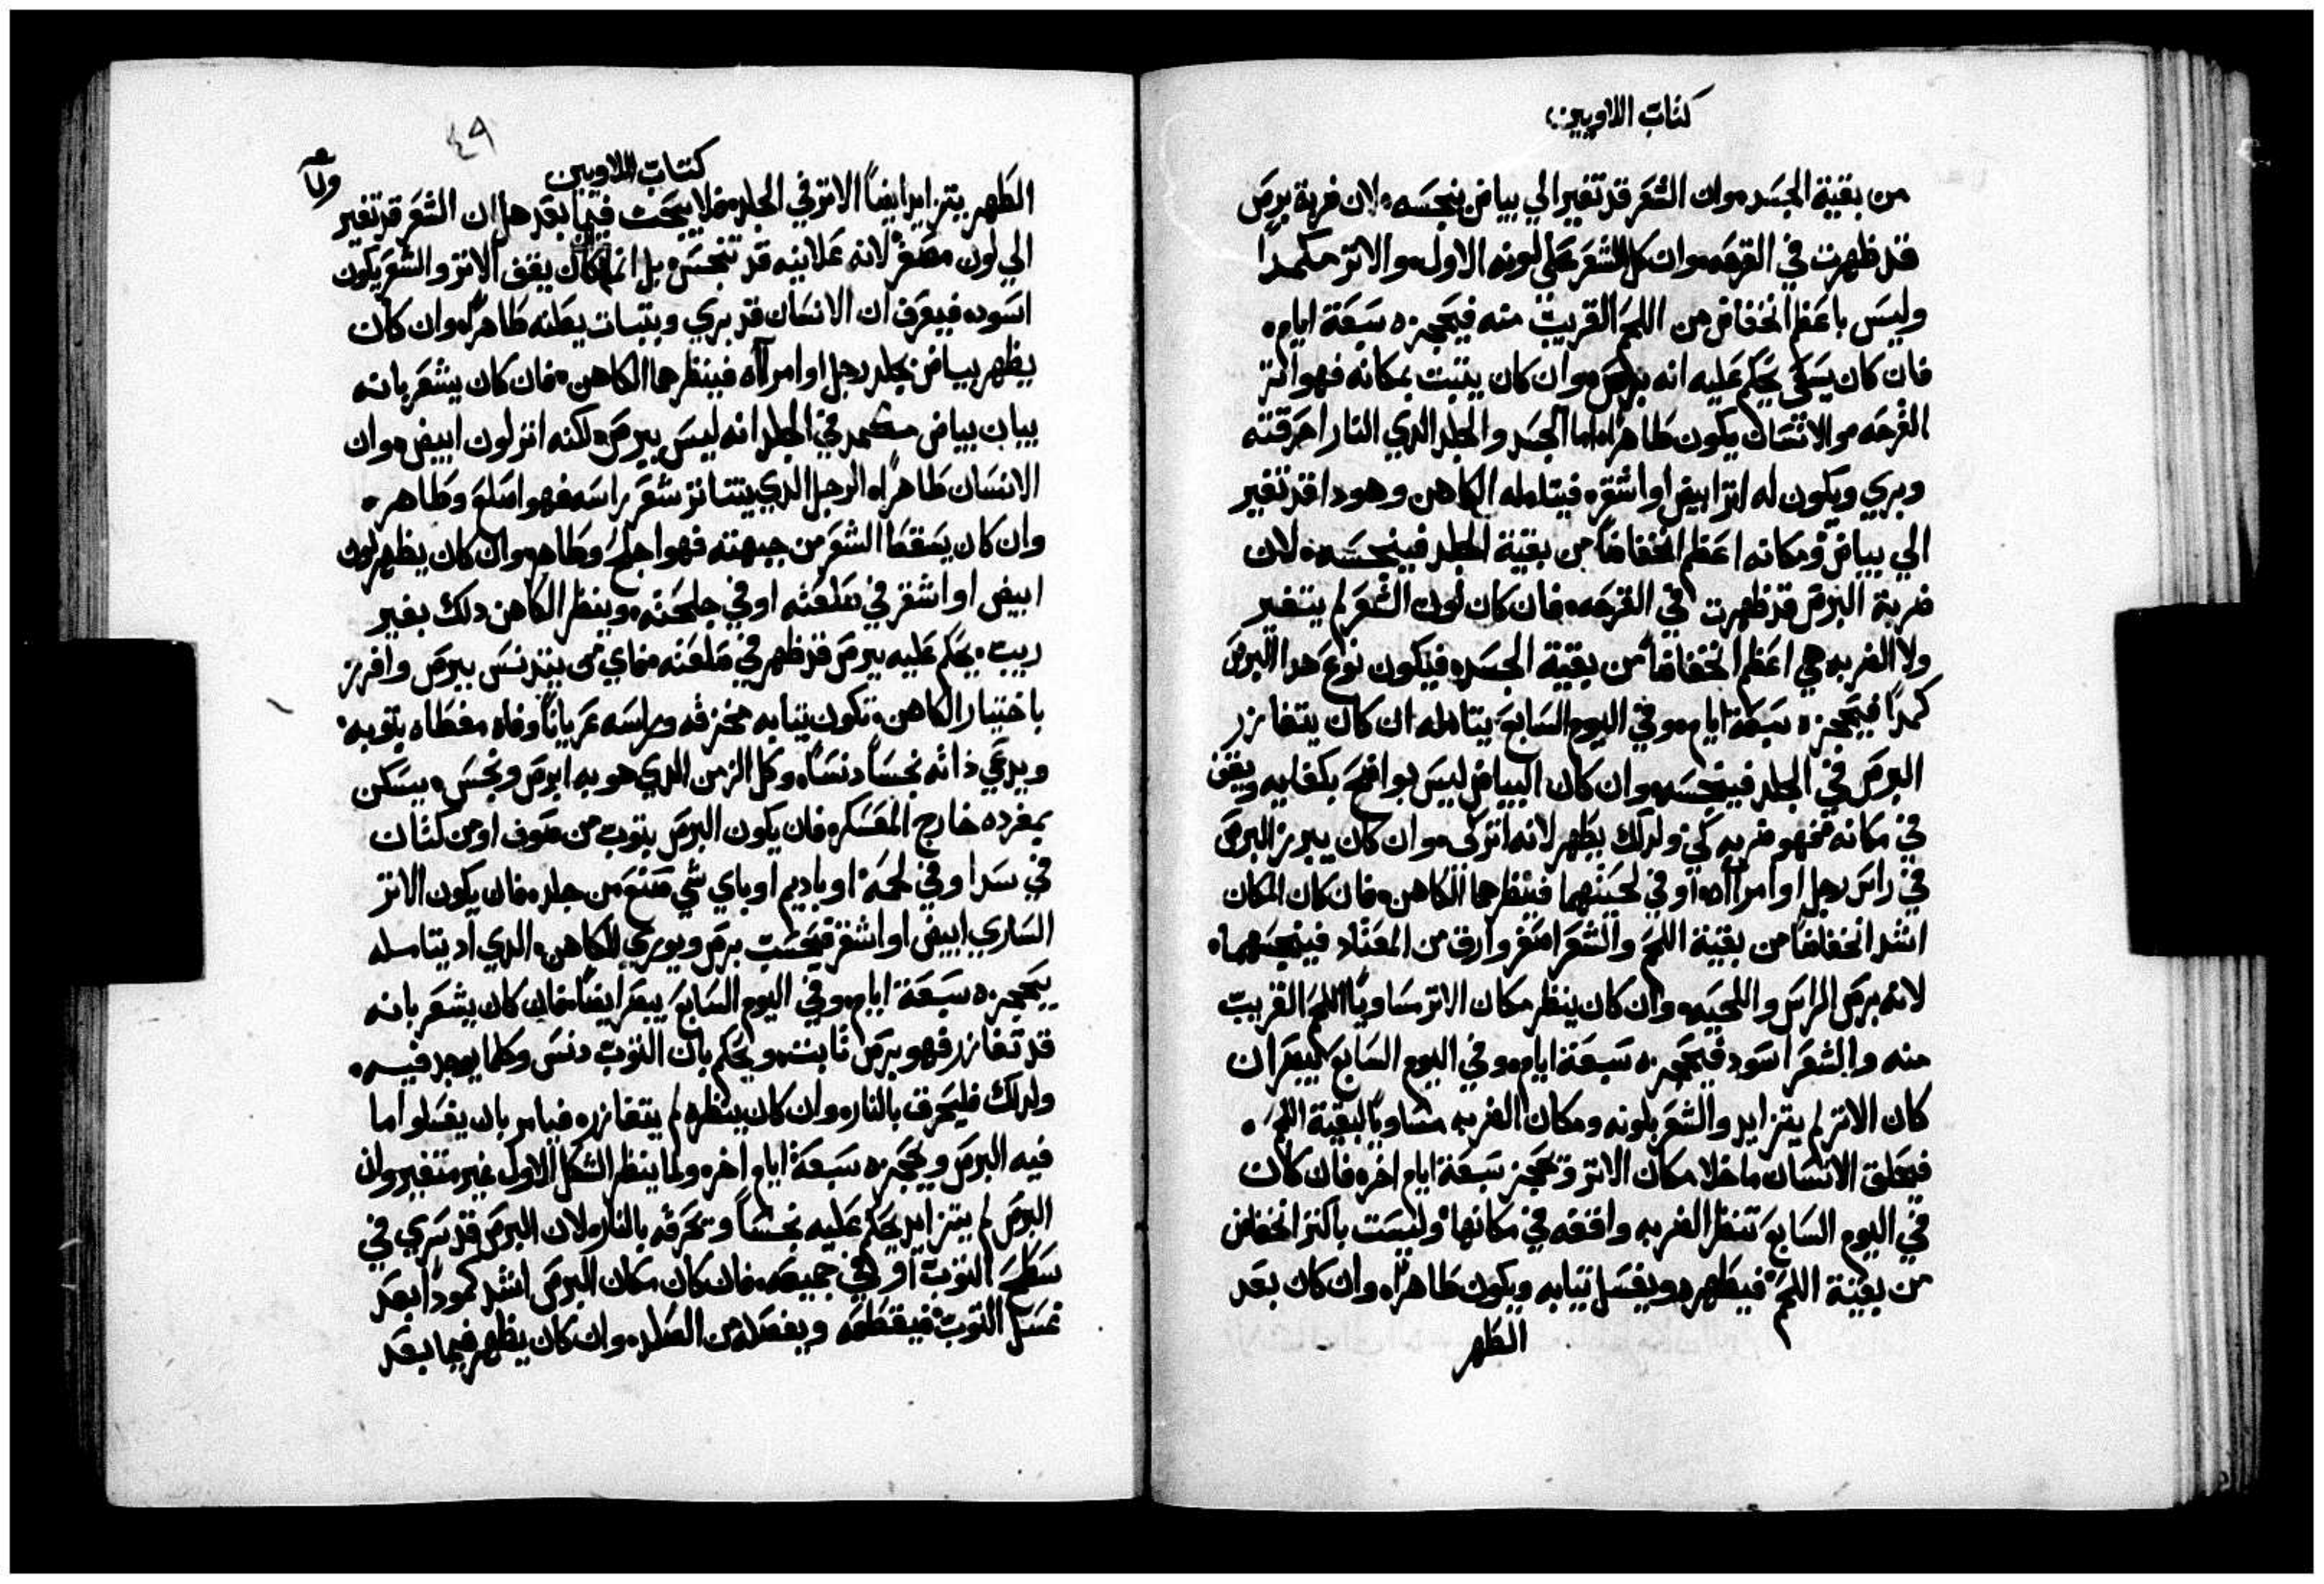 كتاب اللاويين
من بقية الجسد وان الشعر قد تغير الي بياض ينجسه لان ضربة برص
قد ظهرت في القرحه وان كان الشعر علي لونه الاول والاثر مكمدا
وليس باعظم انخفاض من اللحم القريب منه فيحجزه سبعة ايام
فان كان يسعي يحكم عليه انه برص وان كان يثبت بمكانه فهو اثر
القرحه والانسان يكون طاهرا اما الجسد والجلد الدي النار احرقته
وبري ويكون له اثر ابيض او اشقر فيتامله الكاهن وهودا قد تغير
الي بياض ومكانه اعظم انخفاضا من بقية الجلد فينجسه لان
ضربة البرص قد ظهرت في القرحه فان كان لون الشعر لم يتغير
ولا الضربه هي اعظم انخفاضا من بقية الجسد فيكون نوع هدا البرص
كمدا فيحجزه سبعة ايام وفي اليوم السابع يتامله ان كان يتغازر
البرص في الجلد فينجسه وان كان البياض ليس بواضح بكفايه ويقف
في مكانه فهو ضربه كي ولدلك يطهر لانه اثر كي وان كان يبرز البرص
في راس رجل او امراه او في لحيتهما فينظرهما الكاهن فان كان المكان
اشد انخفاضا من بقية اللحم والشعر اصفر وارق من المعتاد فينجسهما
لانه برص الراس واللحيه وان كان ينظر مكان الاثر مساويا اللحم القريب
منه والشعر اسود فيحجزه سبعة ايام وفي اليوم السابع يبصر ان
كان الاثر لم يتزايد والشعر بلونه ومكان الضربه مساويا لبقية اللحم
فيحلق الانسان ما خلا مكان الاثر ويحجز سبعة ايام اخر فان كان
في اليوم السابع تنظر الضربه واقفه في مكانها وليست باكثر انخفاض
من بقية اللحم فيطهره ويغسل تيابه ويكون طاهرا وان كان بعد
الطهر
٤٩
كتاب اللاويين
الطهر يتزايد ايضا الاثر في الجلد فلا يبحث فيما بعد هل ان الشعر قد تغير
الي لون مصفر لانه علانيه قد تنجس بل ان كان يقف الاثر والشعر يكون
اسود فيعرف ان الانسان قد بري وبثبات يعلنه طاهرا وان كان
يظهر بياض بجلد رجل او امراه فينظرهما الكاهن فان كان يشعر بانه
ببان بياض مكمد في الجلد انه ليس ببرص لكنه اثر لون ابيض وان
الانسان طاهرا الرجل الدي يتناثر شعر راسه فهو اصلع وطاهر
وان كان يسقط الشعر من جبهته فهو اجلح وطاهر وان كان يظهر لون
ابيض او اشقر في صلعته او في جلحته وينظر الكاهن دلك بغير
ريب يحكم عليه ببرص قد ظهر في صلعته فاي من يتدنس ببرص وافرز
باختيار الكاهن تكون تيابه مخزقه وراسه عريانا وفاه مغطاه بتوبه
ويدعي ذاته نجسا دنسا وكل الزمن الدي هو به ابرص ونجس يسكن
بمفرده خارج المعسكر فان يكون البرص بتوب من صوف او من كتان
في سدا او في لحمة او باديم او باي شي صنع من جلد فان يكون الاثر
الساري ابيض او اشقر فيحسب برص ويوري للكاهن الدي اد يتامله
يحجزه سبعة ايام وفي اليوم السابع يبصر ايضا فان كان يشعر بانه
قد تغازر فهو برص ثابت ويحكم بان التوب دنس وكلما يوجد فيه
ولدلك فليحرق بالنار وان كان ينظره لم يتغازر فيامر بان يغسلوا ما
فيه البرص ويحجزه سبعة ايام اخر ولما ينظر الشكل الاول غير متغير وان
البرص لم يتزايد يحكم عليه نجسا وتحرقه بالنار لان البرص قد سري في
سطح التوب او في جميعه فان كان مكان البرص اشد كمودا بعد
غسل التوب فيقطعه ويفصله من الصلد وان كان يظهر فيما بعد